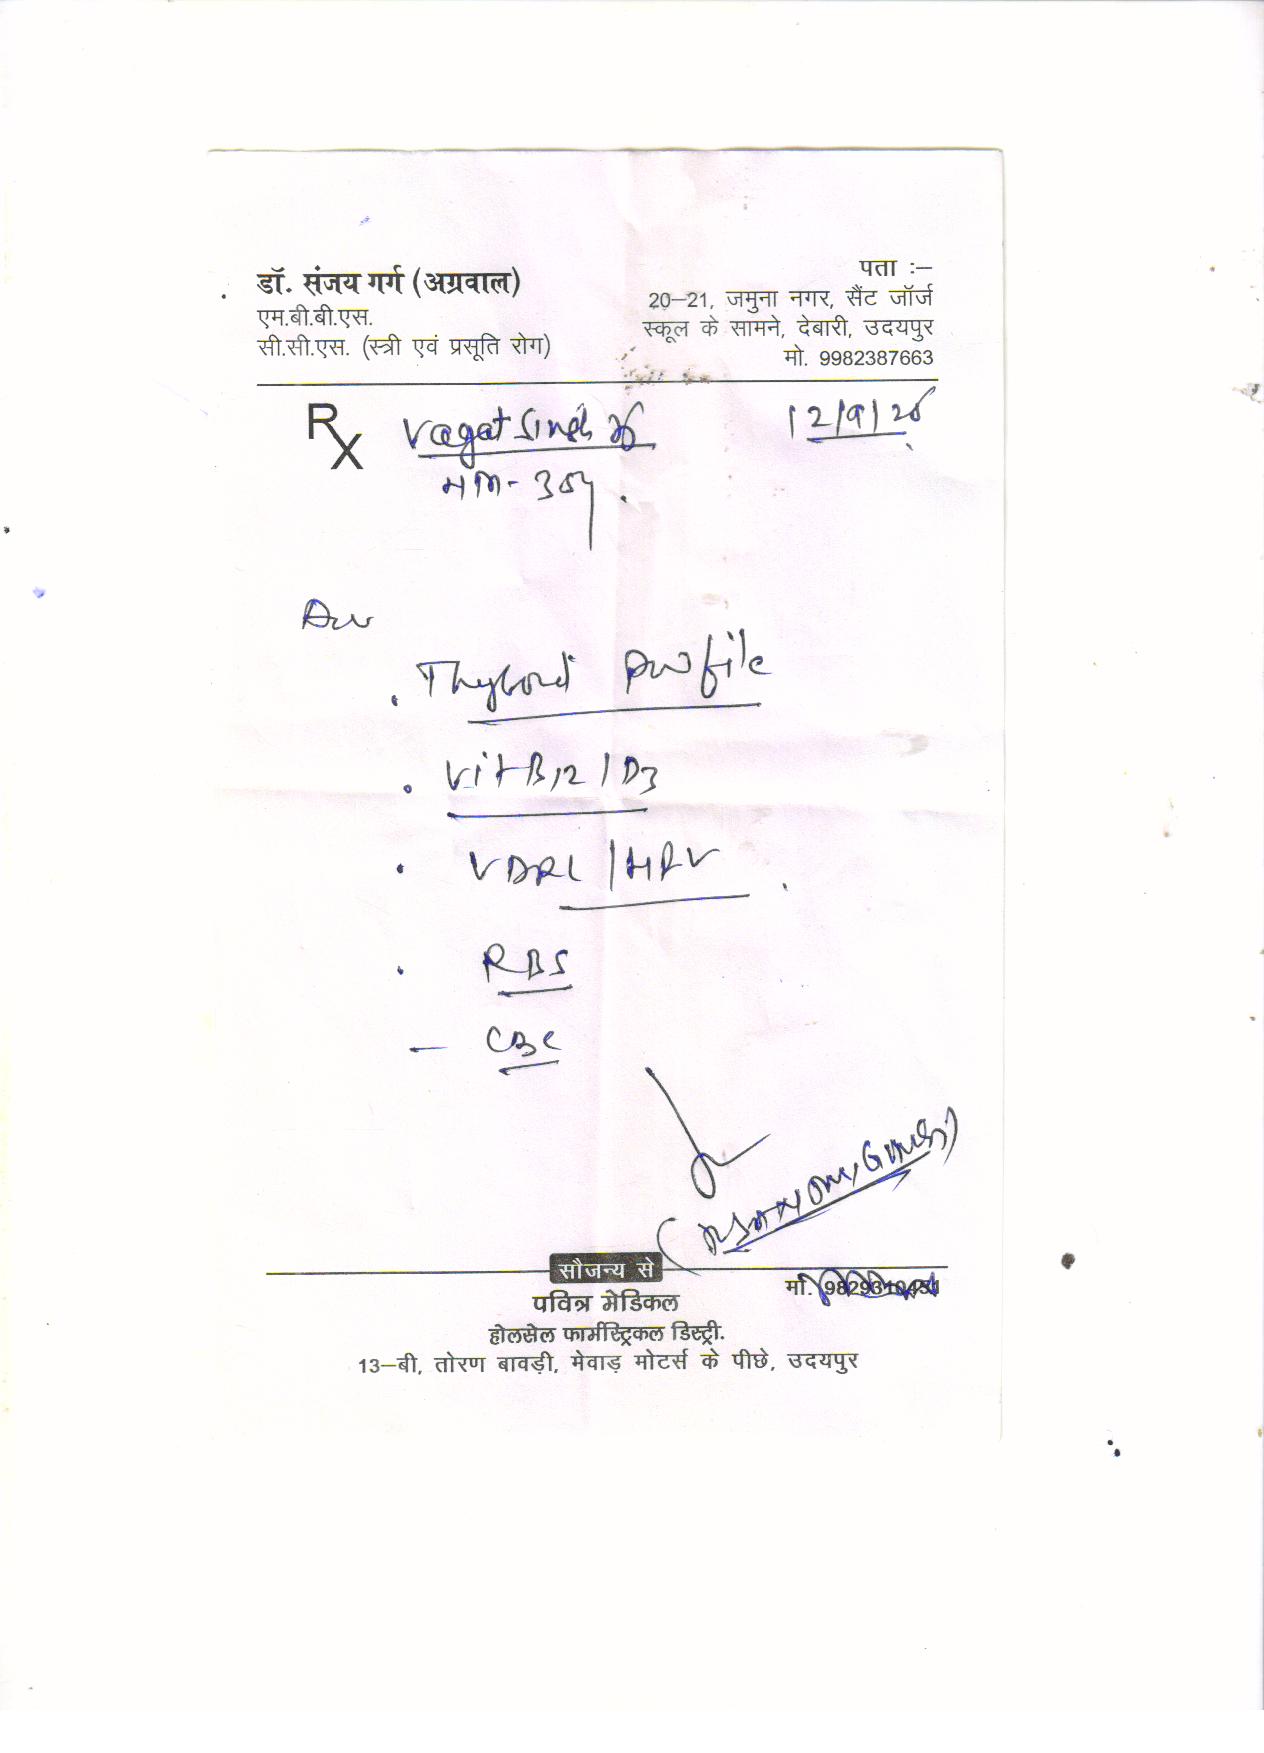 डॉ. संजय गर्ग (अग्रवाल)
एम.बी.बी.एस.
सी.सी.एस. (स्त्री एवं प्रसूति रोग)
पता :–
20–21, जमुना नगर, सैंट जॉर्ज
स्कूल के सामने, देबारी, उदयपुर
मो. 9982387663
Rx Vagat Singh Ji
12/9/
Adv
. Thyroid Profile
. Vit B12 / D3
. VDRL /
. RBS
– CBC
सौजन्य से
मो. 9829310451
पवित्र मेडिकल
होलसेल फार्मास्ट्रिकल डिस्ट्री.
13–बी, तोरण बावड़ी, मेवाड़ मोटर्स के पीछे, उदयपुर